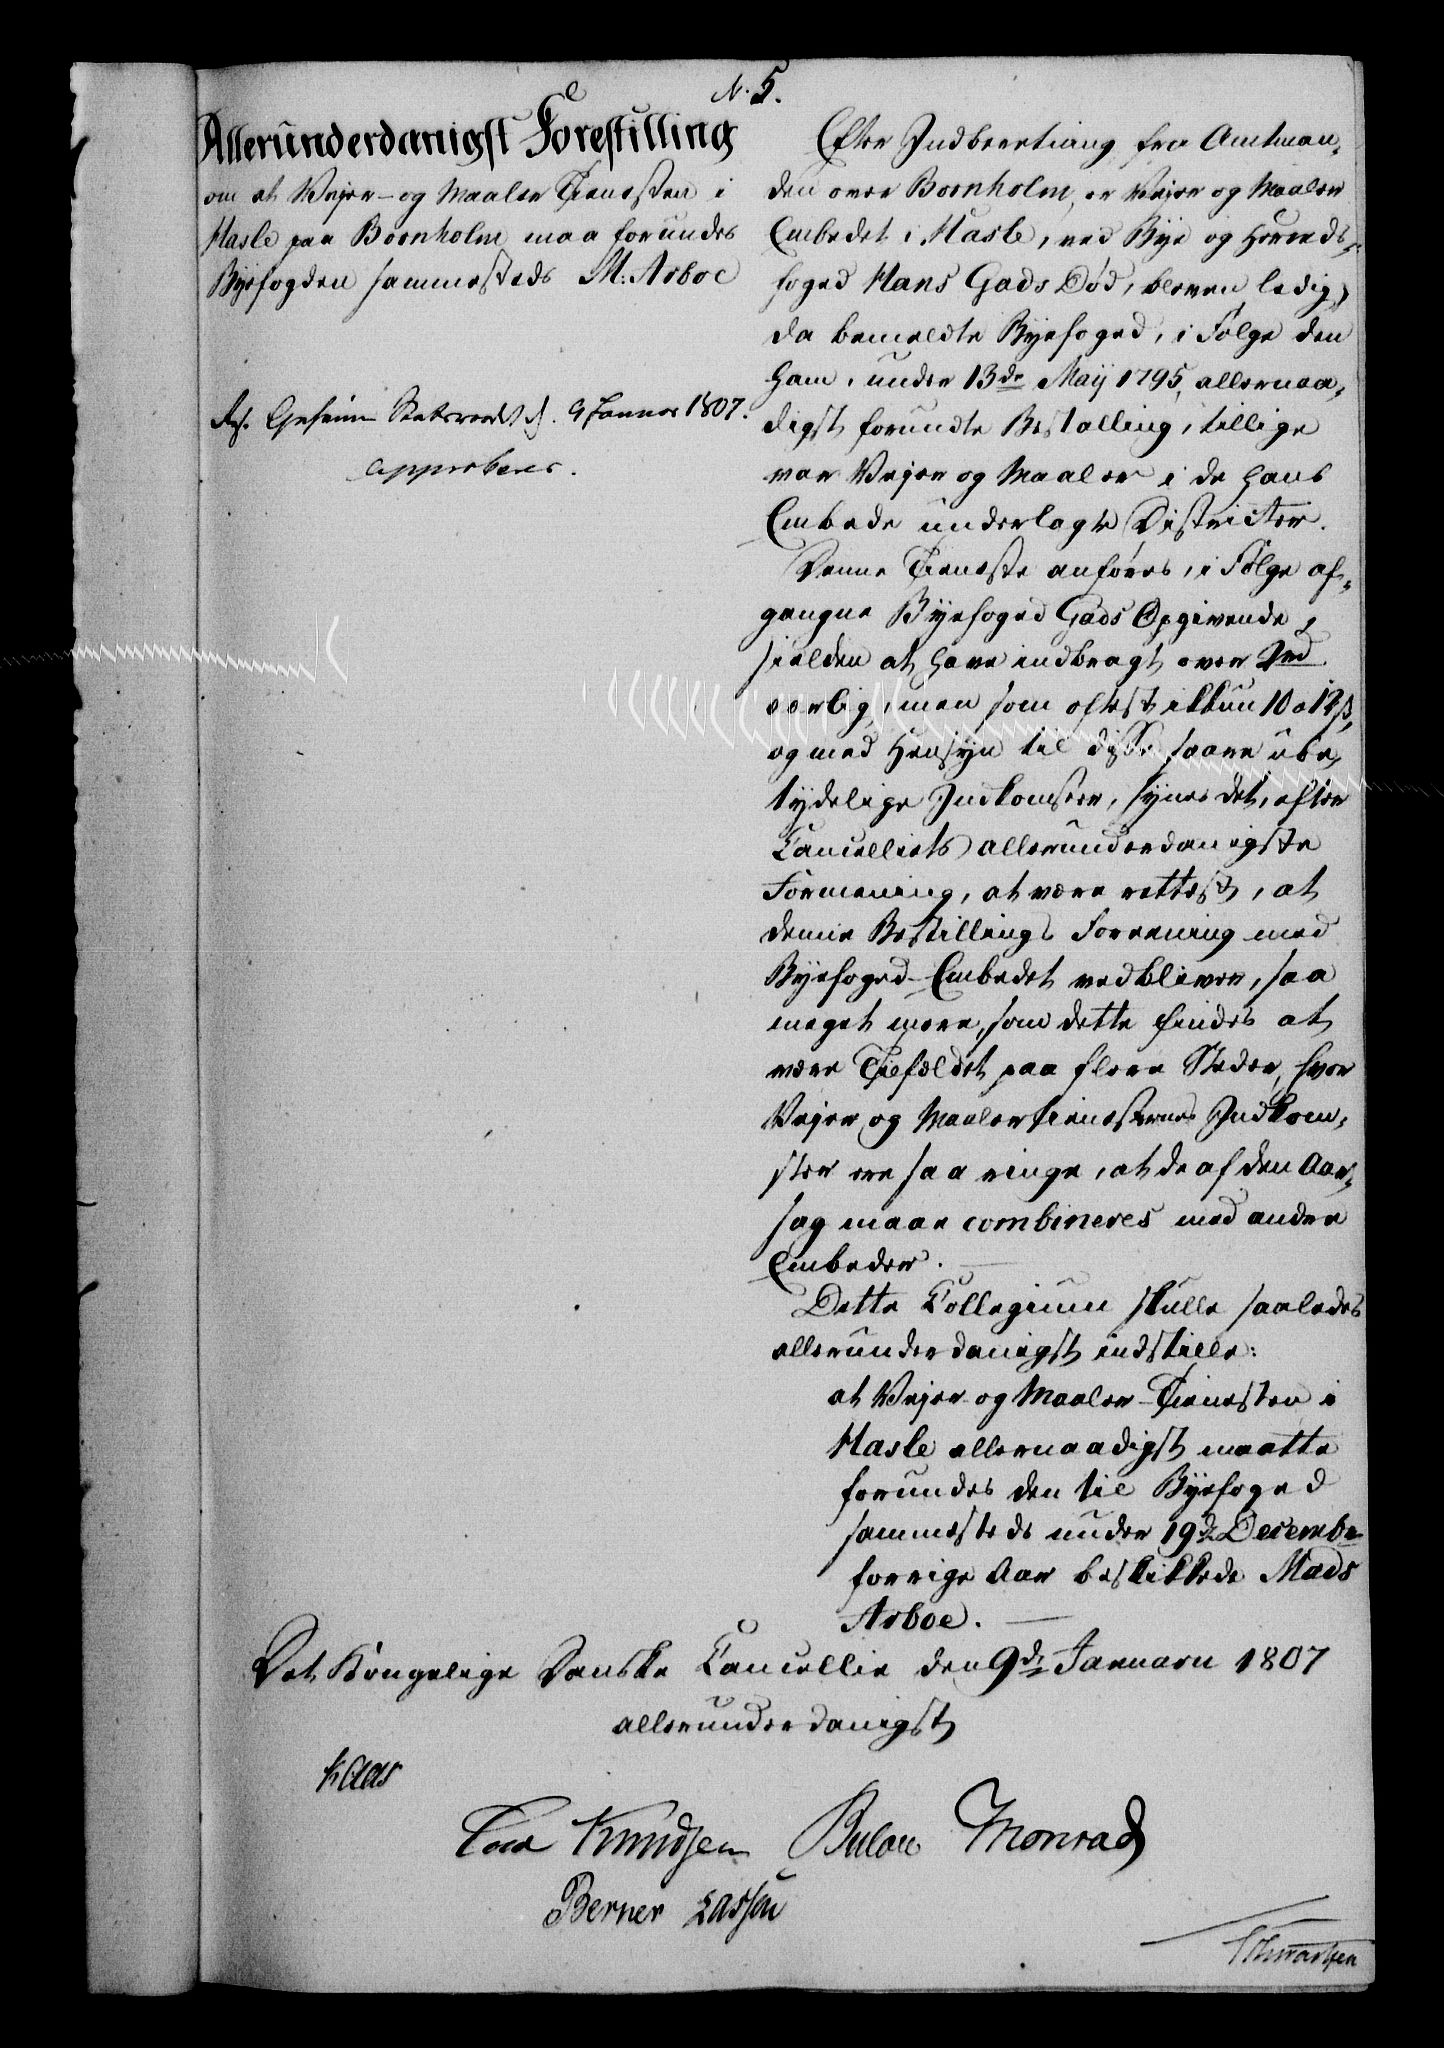 N. 5.
Allerunderdanigst Forestilling
om at Vejer- og Maaler Tienesten i
Hasle paa Bornholm maa forundes
Byefogden sammesteds M: Arboe
Geheime Statsraadet d. 9 Januar 1807.
approberes.
Efter Indberetning fra Amtman-
den over Bornholm, er Vejer og Maaler
Embedet i Hasle, ved Bye og Herreds-
foged Hans Gads Død, bleven ledig,
da bemeldte Byefoged, i Følge den
ham, under 13de Maij 1795, allernaa-
digst forundte Bestalling, tillige
var Vejer og Maaler i de hans
Embede underlagte Districter.
Denne Tieneste anføres, i Følge af-
gangne Byefoged Gads Opgivende,
sielden at have indbragt over 2rd
aarlig, men som oftest ikkun 10 a 12 ß,
og med Hensyn til disse saare ube-
tydelige Indkomster, synes det, efter
Cancelliets allerunderdanigste
Formening, at være rettest, at
denne Bestillings Forening med
Byefoged-Embedet vedbliver, saa
meget mere, som dette findes at
være Tilfældet paa flere Steder, hvor
Vejer og Maalertienesternes Indkom-
ster ere saa ringe, at de af den Aar-
sag maae combineres med andre
Embeder.
Dette Collegium skulle saaledes
allerunderdanigst indstille:
at Vejer- og Maaler-Tienesten i
Hasle allernaadigst maatte
forundes den til Byefoged
sammesteds under 19de Decembr
forrige Aar beskikkede Mads
Arboe.
Det Kongelige Danske Cancellie den 9de Januarii 1807
allerunderdanigst
Kaas
Cold Knudsen Bülow Monrad
Berner Lassen